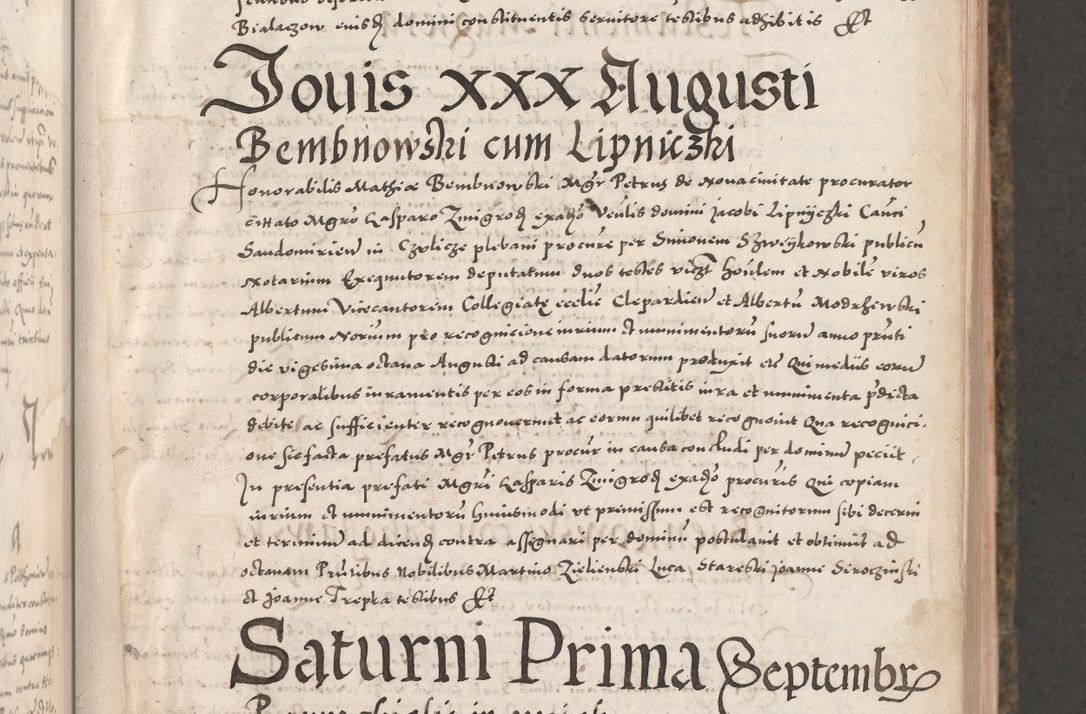 Bialaczow eiusd domini constituentis servitore testibus adhibitis Et
Jouis xxx Augusti
Bembnowski cum Lipniczki
Honorabilis Mathiæ Bembnowski Mgr Petrus de Nouaciuitate procurator
citato Mgro Casparo Zmigrod exadso Venlis domini Jacobi Lipniyczki Canci
Sandomirien in Czvlicze plebani procure per Simonem Szweykowski publicu
Notarium Exequutorem deputatum duos testes vizt honlem et Nobile viros
Albertum Vicecantorem Collegiatę ecclie Clepardien et Albertu Modrzewski
publicum Norium pro recognicione iurium et munimentoru suoru anno prnti
die vigesima octaua Augusti ad causam datorum produxit etc Qui mediis eoru
corporalibus iuramentis per eos in forma prestitis iura et munimenta pdicta
debite ac sufficienter recognouerunt ac eorum quilibet recognouit Qua recognici-
one sic facta prefatus Mgr Petrus procur in causa concludi per dominu peciit
In presentia prefati Mgri Casparis Zmigrod exadso procuris Qui copiam
iurium et munimentoru huiusmodi vt premissum est recognitorum sibi decerni
et terminu ad dicend contra assignari per dominu postulauit et obtinuit ad
octauam Prntibus Nobilibus Martino Zielienski Luca Stareski Joanne Seroczinski
et Joanne Trepka testibus Et
Saturni Prima Septembr